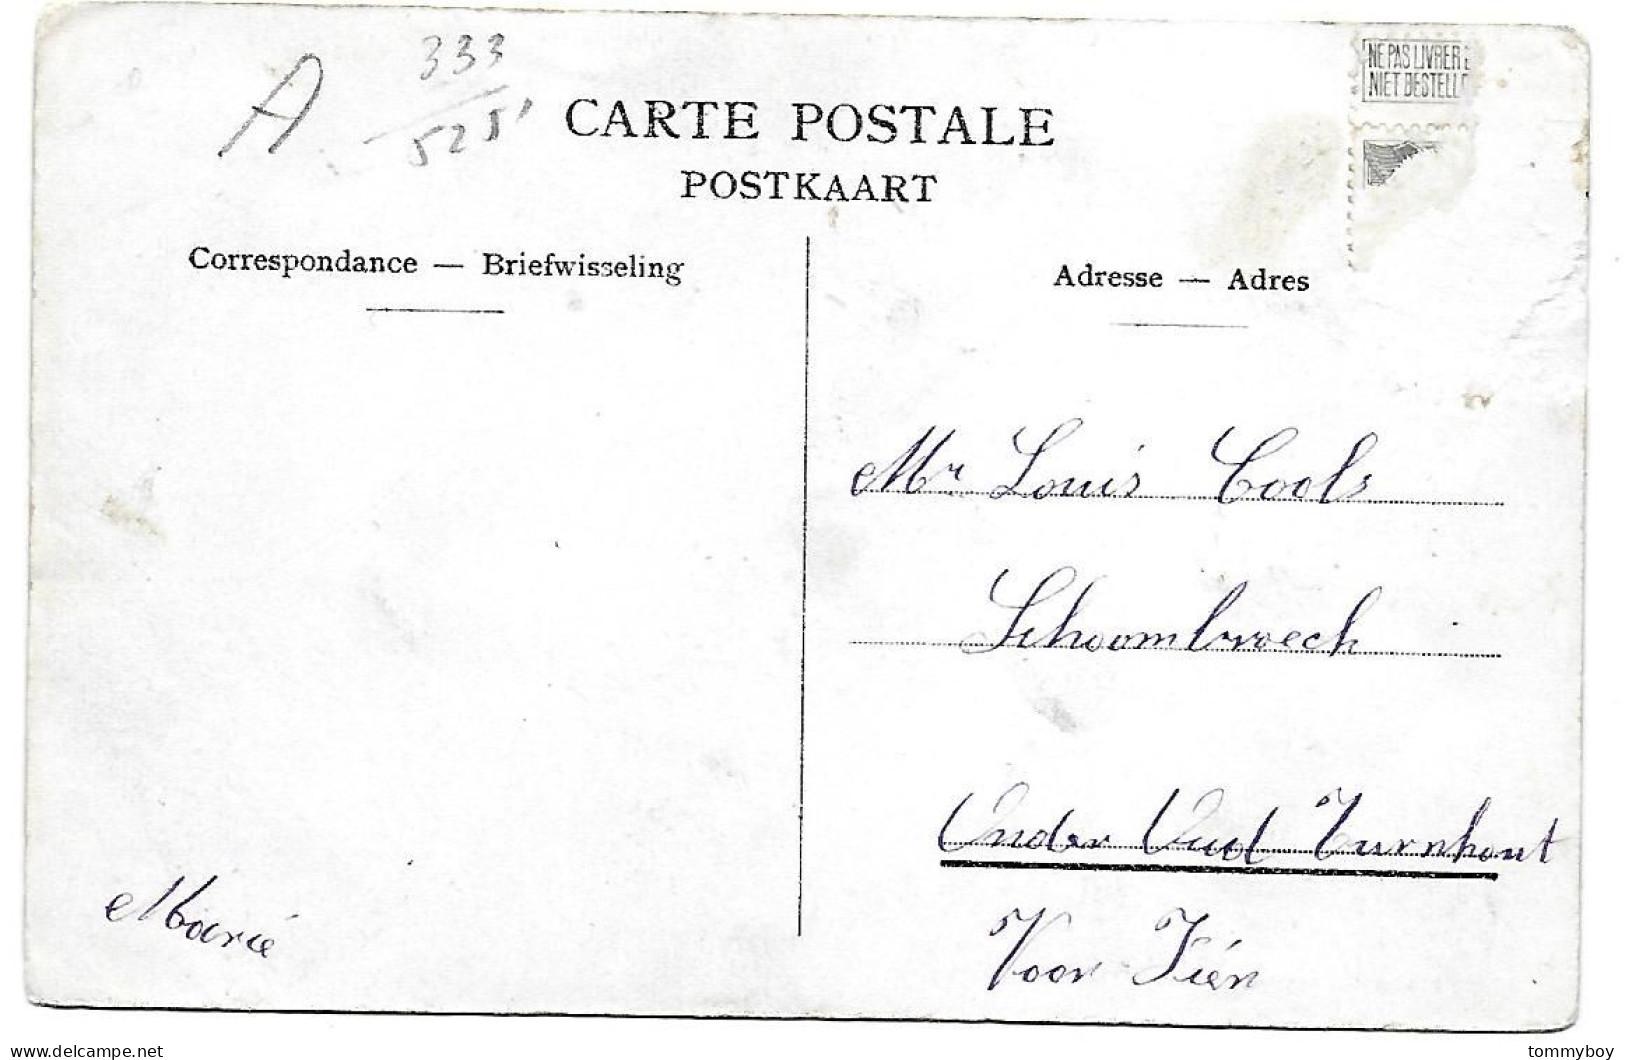 A 333
525
CARTE POSTALE
POSTKAART
NE PAS LIVRER
NIET BESTELL
Correspondance — Briefwisseling
Adresse — Adres
Mr Louis Cools
Schoombroeck
Onder Oud Turnhout
Voor Tién
Marie
delcampe.net
tommyboy